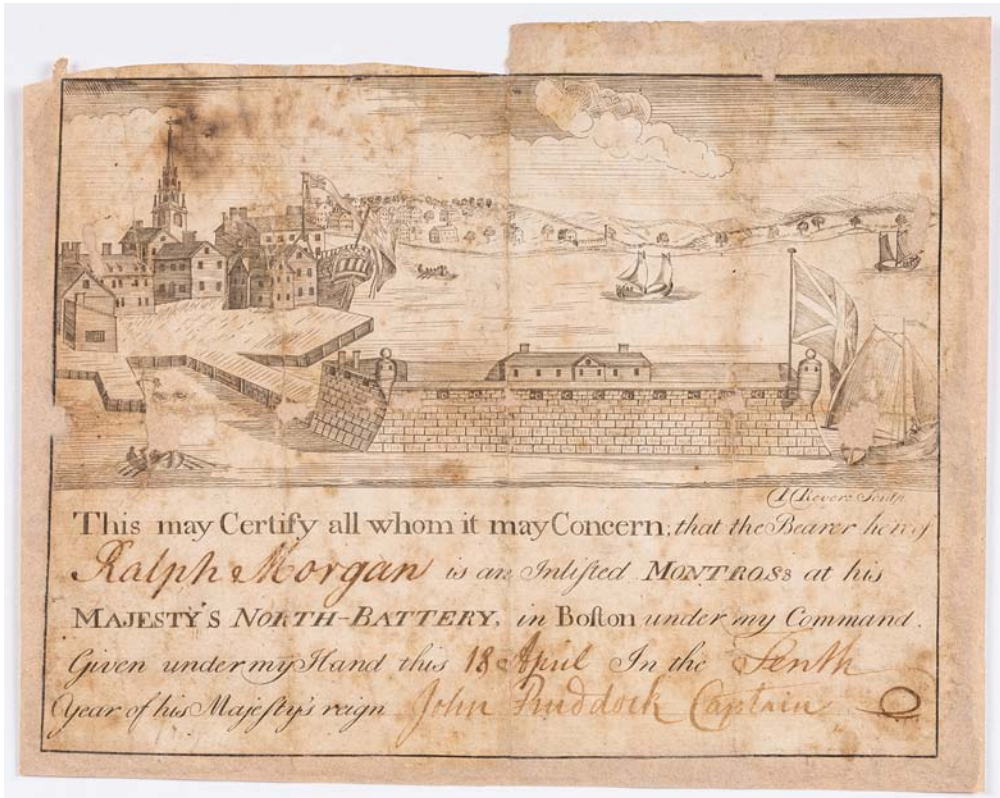 P Revere Sculp
This may Certify all whom it may Concern; that the Bearer hereof
Ralph Morgan is an Inlisted MONTROSS at his
MAJESTY'S NORTH-BATTERY, in Boston under my Command.
Given under my Hand this 18 April In the Tenth
Year of his Majesty's reign John Ruddock Captain